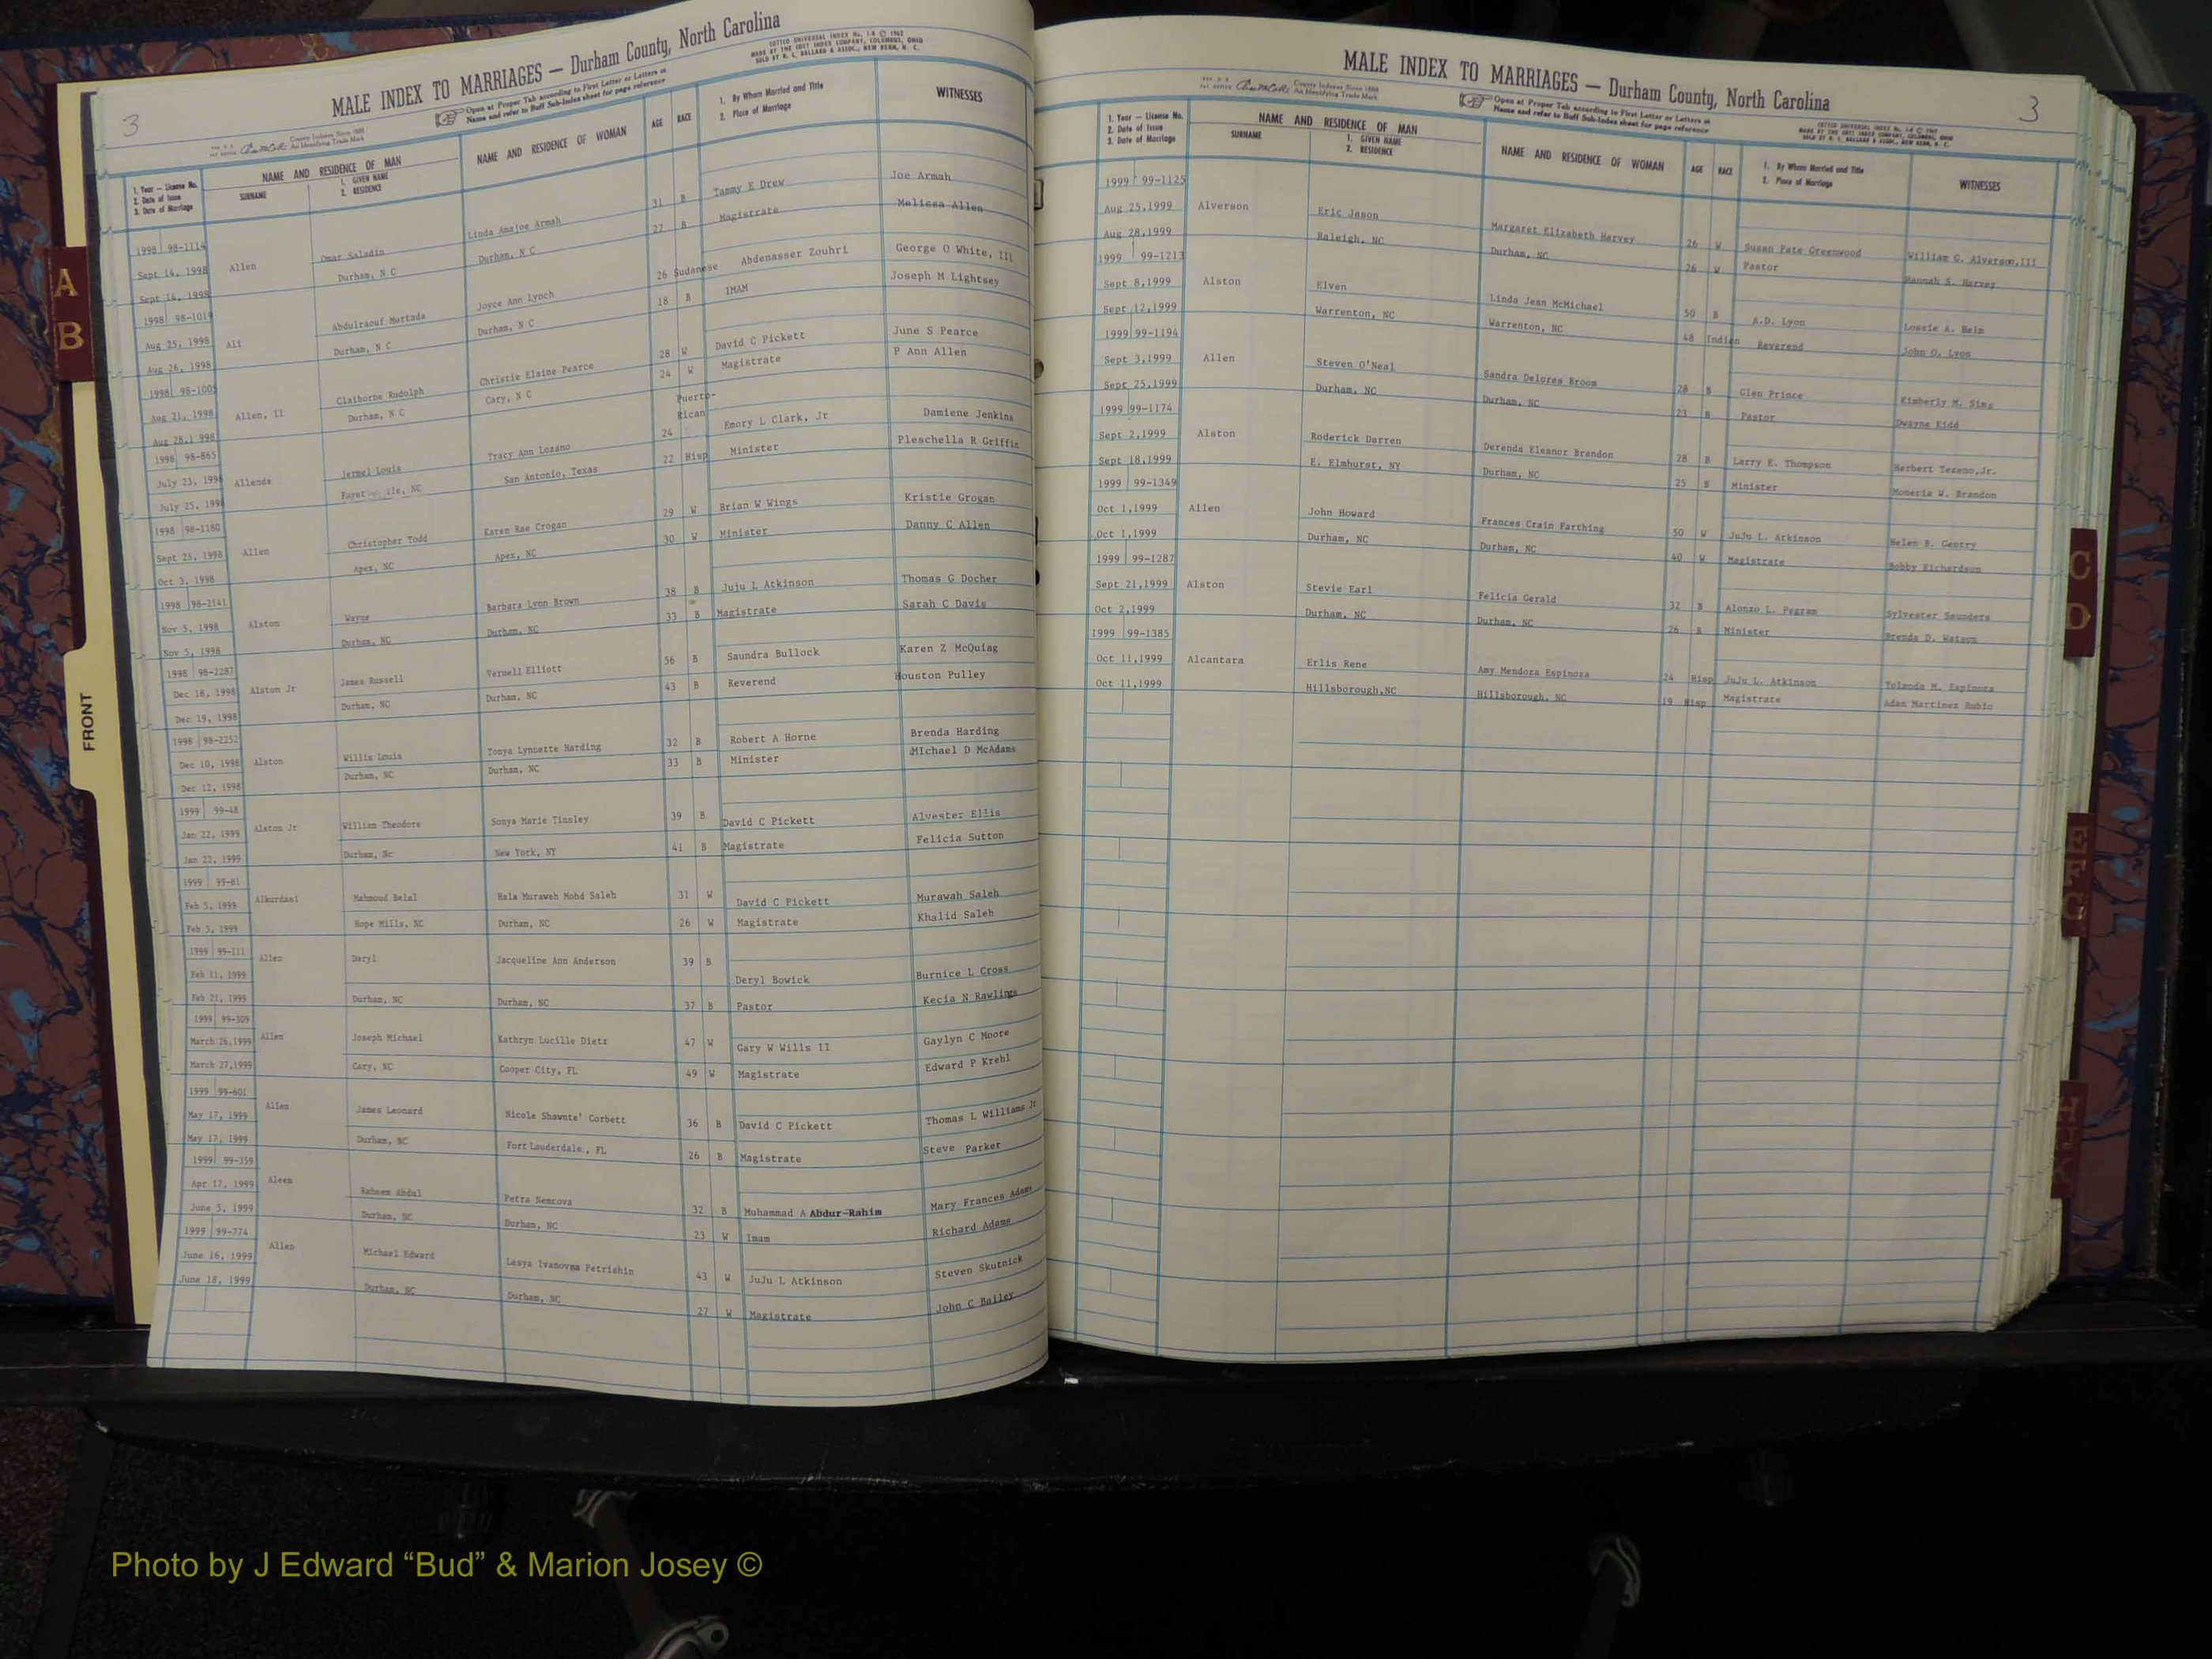 MALE INDEX TO MARRIAGES — Durham County, North Carolina
COTTCO UNIVERSAL INDEX No. 1-8 © 1962
MADE BY THE COTT INDEX COMPANY, COLUMBUS, OHIO
SOLD BY R. L. BALLARD & ASSOC., NEW BERN, N. C.
Open at Proper Tab according to First Letter or Letters of
Name and refer to Buff Sub-Index sheet for page reference
County Indexes Since 1888
An Identifying Trade Mark
3
1. Year — License No.
2. Date of Issue
3. Date of Marriage
NAME AND RESIDENCE OF MAN
SURNAME
1. GIVEN NAME
2. RESIDENCE
NAME AND RESIDENCE OF WOMAN
AGE
RACE
1. By Whom Married and Title
2. Place of Marriage
WITNESSES
1998 98-1114
Sept 14, 1998 Allen Omar Saladin Linda Amajoe Armah 31 B Tammy E Drew Joe Armah
Sept 14, 1998 Durham, N C Durham, N C 27 B Magistrate Melissa Allen
1998 98-1019
Aug 25, 1998 Ali Abdulraouf Murtada Joyce Ann Lynch 26 Sudanese Abdenasser Zouhri George O White, III
Aug 26, 1998 Durham, N C Durham, N C 18 B IMAM Joseph M Lightsey
1998 98-1005
Aug 21, 1998 Allen, II Claiborne Rudolph Christie Elaine Pearce 28 W David C Pickett June S Pearce
Aug 28,1 998 Durham, N C Cary, N C 24 W Magistrate P Ann Allen
1998 98-865
July 23, 1998 Allende Jermel Louis Tracy Ann Lozano 24 Puerto-Rican Emory L Clark, Jr Damiene Jenkins
July 25, 1998 San Antonio, Texas 22 Hisp Minister Pleschella R Griffin
1998 98-1180
Sept 25, 1998 Allen Christopher Todd Karen Rae Crogan 29 W Brian W Wings Kristie Grogan
Oct 3, 1998 Apex, NC Apex, NC 30 W Minister Danny C Allen
1998 98-2141
Nov 5, 1998 Alston Wayne Barbara Lynn Brown 38 B Juju L Atkinson Thomas G Docher
Nov 5, 1998 Durham, NC Durham, NC 33 B Magistrate Sarah C Davis
1998 98-2287
Dec 18, 1998 Alston Jr James Russell Vernell Elliott 56 B Saundra Bullock Karen Z McQuiag
Dec 19, 1998 Durham, NC Durham, NC 43 B Reverend Houston Pulley
1998 98-2252
Dec 10, 1998 Alston Willie Louis Tonya Lynnette Harding 32 B Robert A Horne Brenda Harding
Dec 12, 1998 Durham, NC Durham, NC 33 B Minister MIchael D McAdams
1999 99-48
Jan 22, 1999 Alston Jr William Theodore Sonya Marie Tinsley 39 B David C Pickett Alvester Ellis
Jan 22, 1999 Durham, Nc New York, NY 41 B Magistrate Felicia Sutton
1999 99-81
Feb 5, 1999 Alkurdani Mahmoud Belal Hala Muraweh Mohd Saleh 31 W David C Pickett Murawah Saleh
Feb 5, 1999 Hope Mills, NC Durham, NC 26 W Magistrate Khalid Saleh
1999 99-111
Feb 11, 1999 Allen Daryl Jacqueline Ann Anderson 39 B Deryl Bowick Burnice L Cross
Feb 21, 1999 Durham, NC Durham, NC 37 B Pastor Kecia N Rawlings
1999 99-309
March 26,1999 Allen Joseph Michael Kathryn Lucille Dietz 47 W Gary W Wills II Gaylyn C Moore
March 27,1999 Cary, NC Cooper City, FL 49 W Magistrate Edward P Krehl
1999 99-601
May 17, 1999 Allen James Leonard Nicole Shawnte' Corbett 36 B David C Pickett Thomas L Williams Jr
May 17, 1999 Durham, NC Fort Lauderdale., FL 26 B Magistrate Steve Parker
1999 99-359
Apr 17, 1999 Aleem Raheem Abdul Petra Nemcova 32 B Muhammad A Abdur-Rahim Mary Frances Adams
June 5, 1999 Durham, NC Durham, NC 23 W Imam Richard Adams
1999 99-774
June 16, 1999 Allen Michael Edward Lesya Ivanovna Petrishin 43 W JuJu L Atkinson Steven Skutnick
June 18, 1999 Durham, NC Durham, NC 27 W Magistrate John C Bailey
MALE INDEX TO MARRIAGES — Durham County, North Carolina
County Indexes Since 1888
An Identifying Trade Mark
Open at Proper Tab according to First Letter or Letters of
Name and refer to Buff Sub-Index sheet for page reference
COTTCO UNIVERSAL INDEX No. 1-8 © 1962
MADE BY THE COTT INDEX COMPANY, COLUMBUS, OHIO
SOLD BY R. L. BALLARD & ASSOC., NEW BERN, N. C.
3
1. Year — License No.
2. Date of Issue
3. Date of Marriage
NAME AND RESIDENCE OF MAN
SURNAME
1. GIVEN NAME
2. RESIDENCE
NAME AND RESIDENCE OF WOMAN
AGE
RACE
1. By Whom Married and Title
2. Place of Marriage
WITNESSES
1999 99-1125
Aug 25,1999 Alverson Eric Jason Margaret Elizabeth Harvey 26 W Susan Pate Greenwood William G. Alverson,III
Aug 28,1999 Raleigh, NC Durham, NC 26 W Pastor Hannah S. Harvey
1999 99-1213
Sept 8,1999 Alston Elven Linda Jean McMichael 50 B A.D. Lyon Lossie A. Helm
Sept 12,1999 Warrenton, NC Warrenton, NC 48 Indian Reverend John O. Lyon
1999 99-1194
Sept 3,1999 Allen Steven O'Neal Sandra Delores Broom 28 B Glen Prince Kimberly M. Sims
Sept 25,1999 Durham, NC Durham, NC 23 B Pastor Dwayne Kidd
1999 99-1174
Sept 2,1999 Alston Roderick Darren Derenda Eleanor Brandon 28 B Larry E. Thompson Herbert Tezeno,Jr.
Sept 18,1999 E. Elmhurst, NY Durham, NC 25 B Minister Moneria W. Brandon
1999 99-1349
Oct 1,1999 Allen John Howard Frances Crain Farthing 50 W JuJu L. Atkinson Helen B. Gentry
Oct 1,1999 Durham, NC Durham, NC 40 W Magistrate Bobby Richardson
1999 99-1287
Sept 21,1999 Alston Stevie Earl Felicia Gerald 32 B Alonzo L. Pegram Sylvester Saunders
Oct 2,1999 Durham, NC Durham, NC 26 B Minister Brenda D. Watson
1999 99-1385
Oct 11,1999 Alcantara Erlis Rene Amy Mendoza Espinoza 24 Hisp JuJu L. Atkinson Yolanda M. Espinoza
Oct 11,1999 Hillsborough,NC Hillsborough, NC 19 Hisp Magistrate Adan Martinez Rubio
A
B
FRONT
C
D
E
Photo by J Edward “Bud” & Marion Josey ©